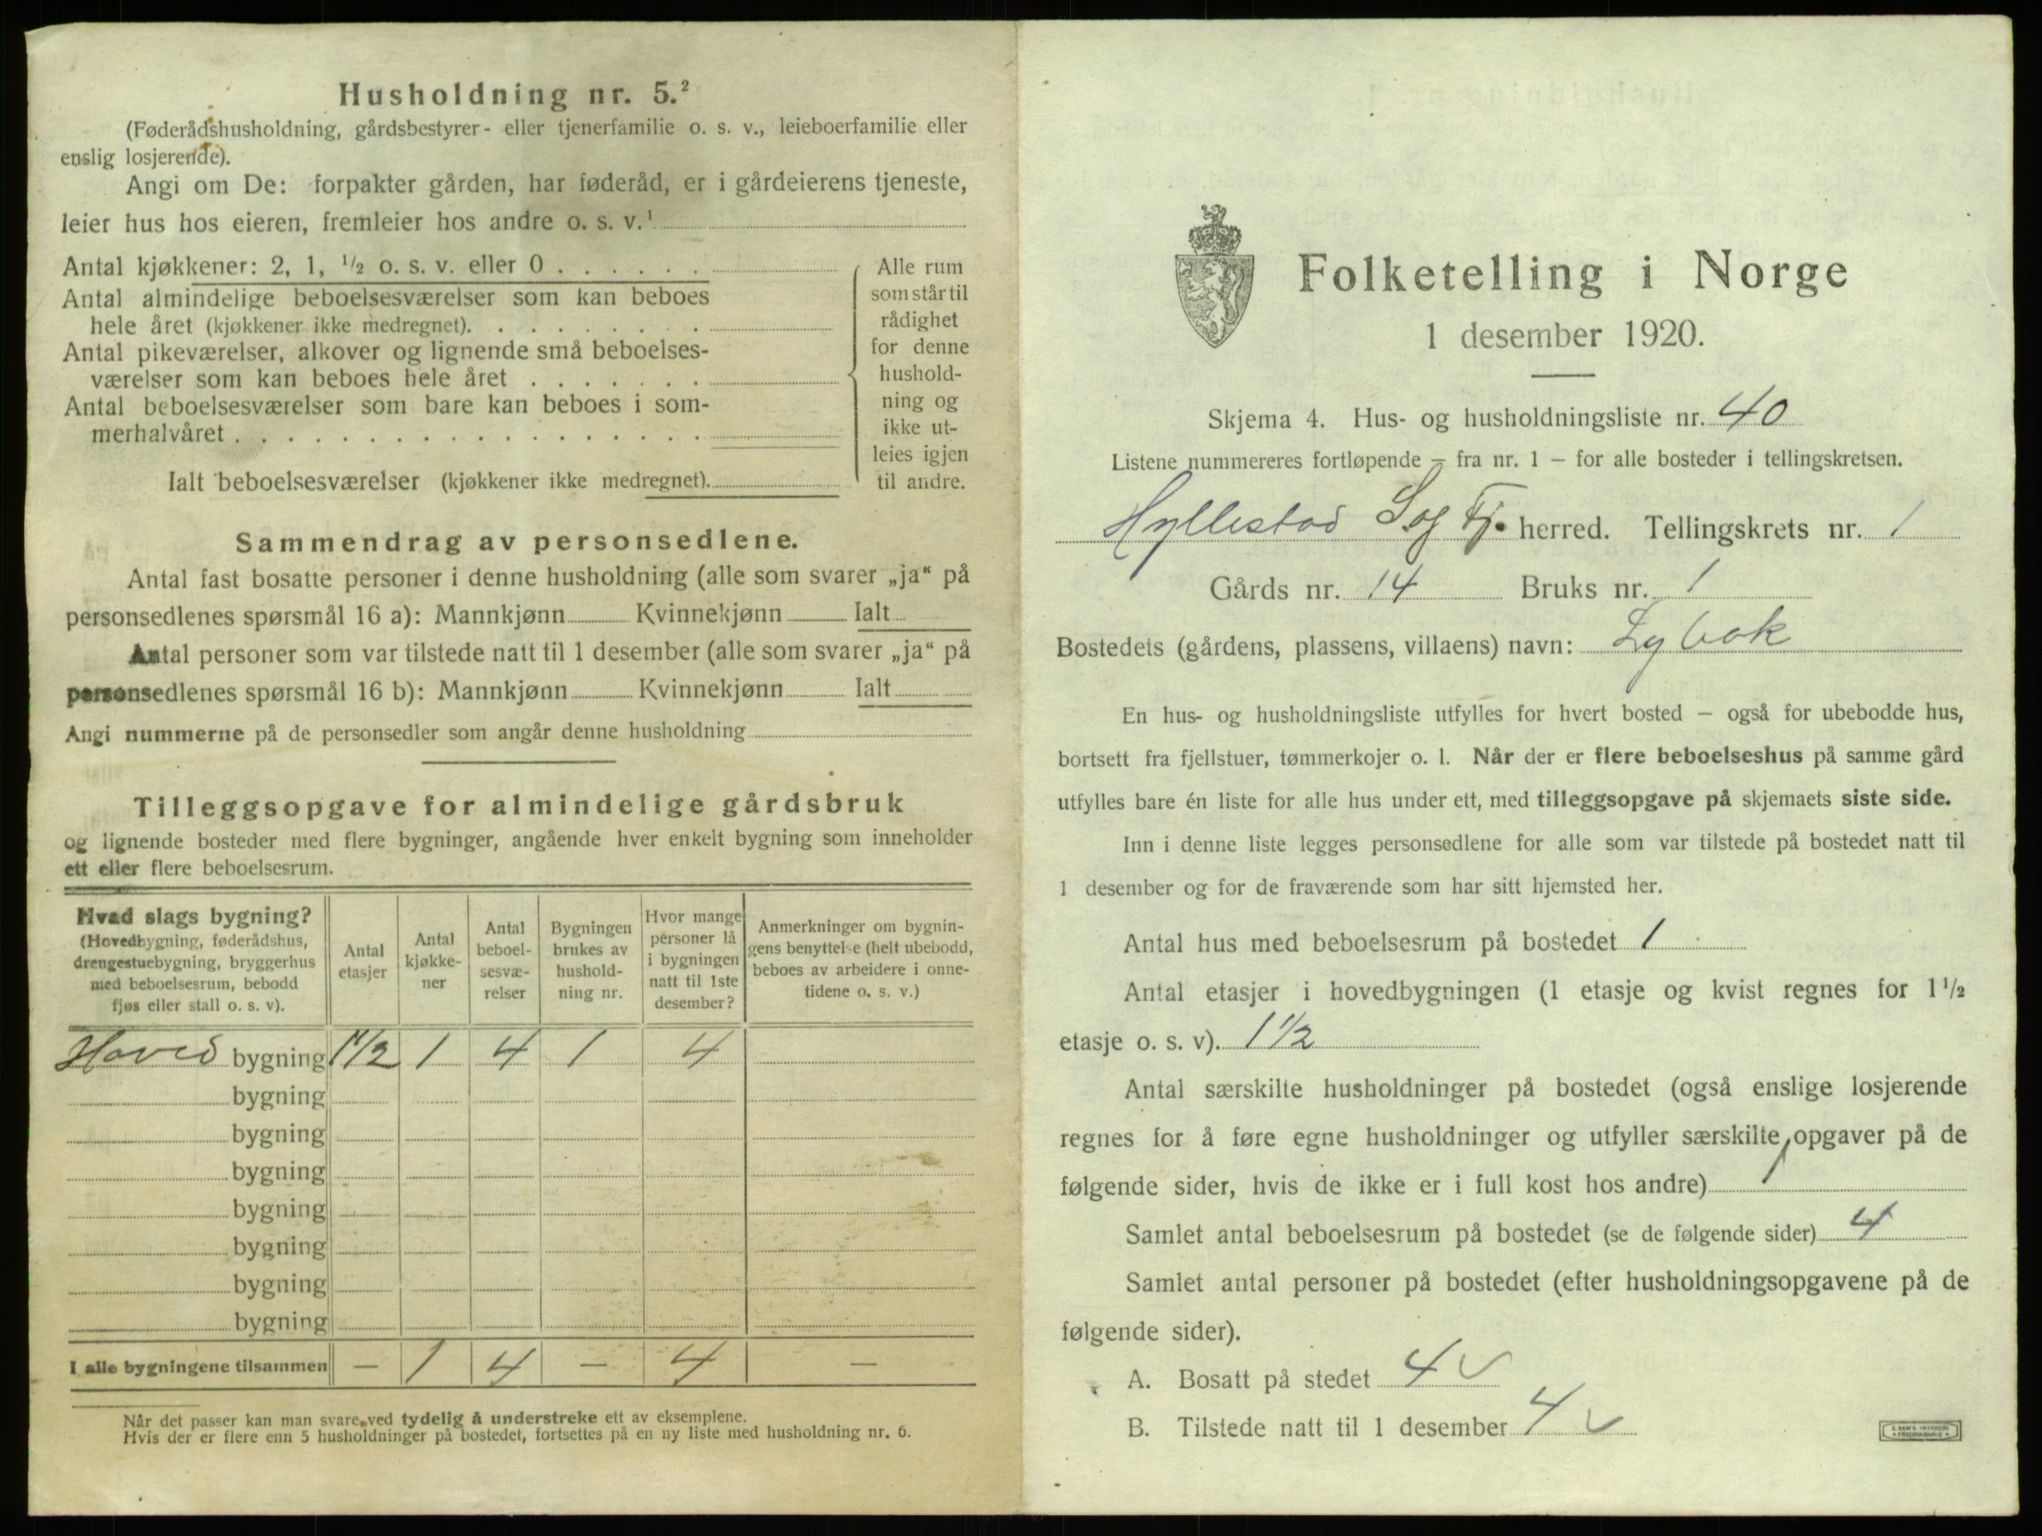 Husholdning nr. 5.²
(Føderådshusholdning, gårdsbestyrer- eller tjenerfamilie o. s. v., leieboerfamilie eller
enslig losjerende).
Angi om De: forpakter gården, har føderåd, er i gårdeierens tjeneste,
leier hus hos eieren, fremleier hos andre o. s. v.¹
Antal kjøkkener: 2, 1, ½ o. s. v. eller 0 . . . . . .
Antal almindelige beboelsesværelser som kan beboes
hele året (kjøkkener ikke medregnet). . . . . . . . .
Antal pikeværelser, alkover og lignende små beboelses-
værelser som kan beboes hele året . . . . . . .
Antal beboelsesværelser som bare kan beboes i som-
merhalvåret . . . . . . . . . . . . . . . . . .
Ialt beboelsesværelser (kjøkkener ikke medregnet).
Alle rum
som står til
rådighet
for denne
hushold-
ning og
ikke ut-
leies igjen
til andre.
Sammendrag av personsedlene.
Antal fast bosatte personer i denne husholdning (alle som svarer „ja“ på
personsedlenes spørsmål 16 a): Mannkjønn Kvinnekjønn Ialt
Antal personer som var tilstede natt til 1 desember (alle som svarer „ja“ på
personsedlenes spørsmål 16 b): Mannkjønn Kvinnekjønn Ialt
Angi nummerne på de personsedler som angår denne husholdning
Tilleggsopgave for almindelige gårdsbruk
og lignende bosteder med flere bygninger, angående hver enkelt bygning som inneholder
ett eller flere beboelsesrum.
Hvad slags bygning?
(Hovedbygning, føderådshus,
drengestuebygning, bryggerhus
med beboelsesrum, bebodd
fjøs eller stall o. s. v).
Antal
etasjer
Antal
kjøkke-
ner
Antal
beboel-
sesvæ-
relser
Bygningen
brukes av
hushold-
ning nr.
Hvor mange
personer lå
i bygningen
natt til 1ste
desember?
Anmerkninger om bygnin-
gens benyttelse (helt ubebodd,
beboes av arbeidere i onne-
tidene o. s. v.)
Hoved bygning 1½ 1 4 1 4
bygning
bygning
bygning
bygning
bygning
bygning
bygning
I alle bygningene tilsammen — 1 4 — 4 —
Når det passer kan man svare ved tydelig å understreke ett av eksemplene.
Hvis der er flere enn 5 husholdninger på bostedet, fortsettes på en ny liste med husholdning nr. 6.
Folketelling i Norge
1 desember 1920.
Skjema 4. Hus- og husholdningsliste nr. 40
Listene nummereres fortløpende — fra nr. 1 — for alle bosteder i tellingskretsen.
Hyllestad Sog Fj. herred. Tellingskrets nr. 1
Gårds nr. 14 Bruks nr. 1
Bostedets (gårdens, plassens, villaens) navn: Lybak
En hus- og husholdningsliste utfylles for hvert bosted — også for ubebodde hus,
bortsett fra fjellstuer, tømmerkojer o. l. Når der er flere beboelseshus på samme gård
utfylles bare én liste for alle hus under ett, med tilleggsopgave på skjemaets siste side.
Inn i denne liste legges personsedlene for alle som var tilstede på bostedet natt til
1 desember og for de fraværende som har sitt hjemsted her.
Antal hus med beboelsesrum på bostedet 1
Antal etasjer i hovedbygningen (1 etasje og kvist regnes for 1½
etasje o. s. v). 1½
Antal særskilte husholdninger på bostedet (også enslige losjerende
regnes for å føre egne husholdninger og utfyller særskilte opgaver på de
følgende sider, hvis de ikke er i full kost hos andre) 1
Samlet antal beboelsesrum på bostedet (se de følgende sider) 4
Samlet antal personer på bostedet (efter husholdningsopgavene på de
følgende sider).
A. Bosatt på stedet 4 ✓
B. Tilstede natt til 1 desember 4 ✓